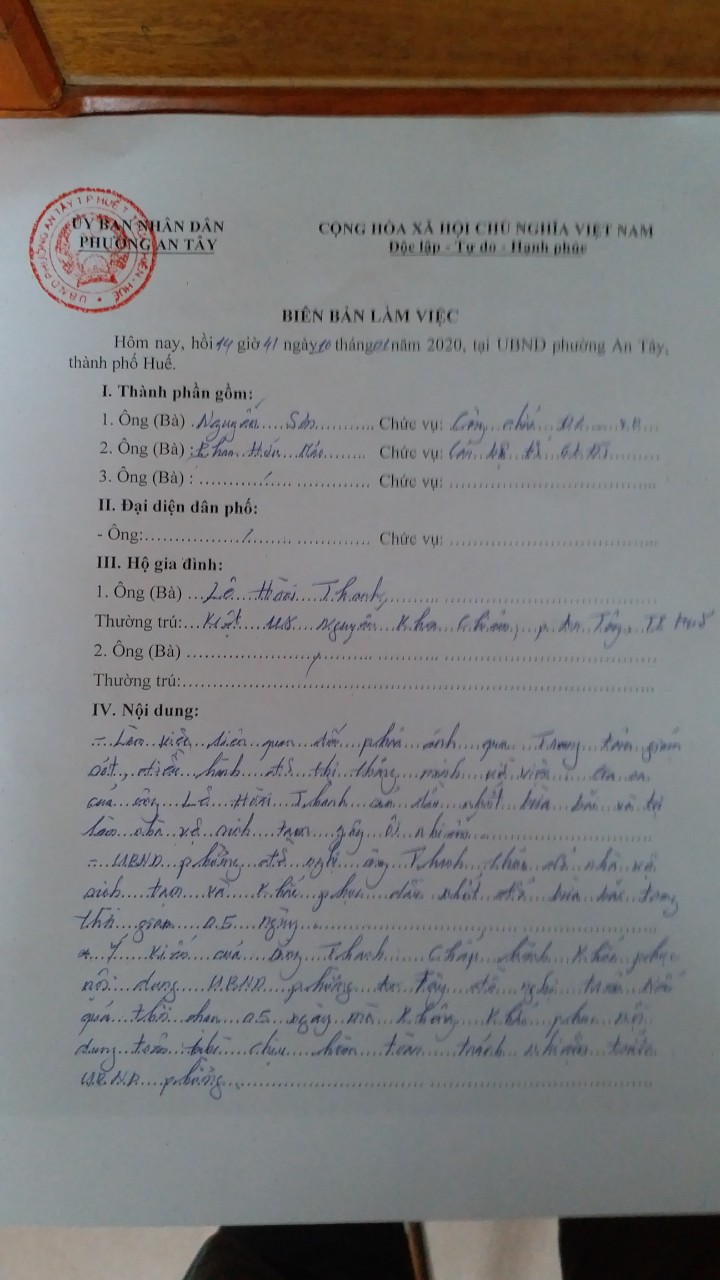 ỦY BAN NHÂN DÂN
PHƯỜNG AN TÂY
CỘNG HÒA XÃ HỘI CHỦ NGHĨA VIỆT NAM
Độc lập - Tự do - Hạnh phúc
BIÊN BẢN LÀM VIỆC
Hôm nay, hồi 14 giờ 41 ngày 10 tháng năm 2020, tại UBND phường An Tây,
thành phố Huế.
I. Thành phần gồm:
1. Ông (Bà) Nguyễn Chức vụ: Công
2. Ông (Bà) : Phan Hữu Chức vụ: Cán bộ
3. Ông (Bà) : / Chức vụ:
II. Đại diện dân phố:
- Ông: / Chức vụ:
III. Hộ gia đình:
1. Ông (Bà) Lê Hoài Thanh
Thường trú: Kiệt Nguyễn Khoa Chiêm, p An Tây, TP Huế
2. Ông (Bà)
Thường trú:
IV. Nội dung:
- Làm việc liên quan đến phản ánh qua Trung tâm giám
sát, điều hành đô thị thông minh về việc
của ông Lê Hoài Thanh nhốt bừa bãi và
làm nhà vệ sinh tạm gây ô nhiễm
- UBND phường đề nghị ông Thanh tháo dỡ nhà vệ
sinh tạm và khắc phục nhốt bừa bãi trong
thời gian 05 ngày
* Ý kiến của ông Thanh chấp hành khắc phục
nội dung UBND phường An Tây đề nghị trên nếu
quá thời hạn 05 ngày mà không khắc phục nội
dung trên chịu hoàn toàn trách nhiệm trước
UBND phường